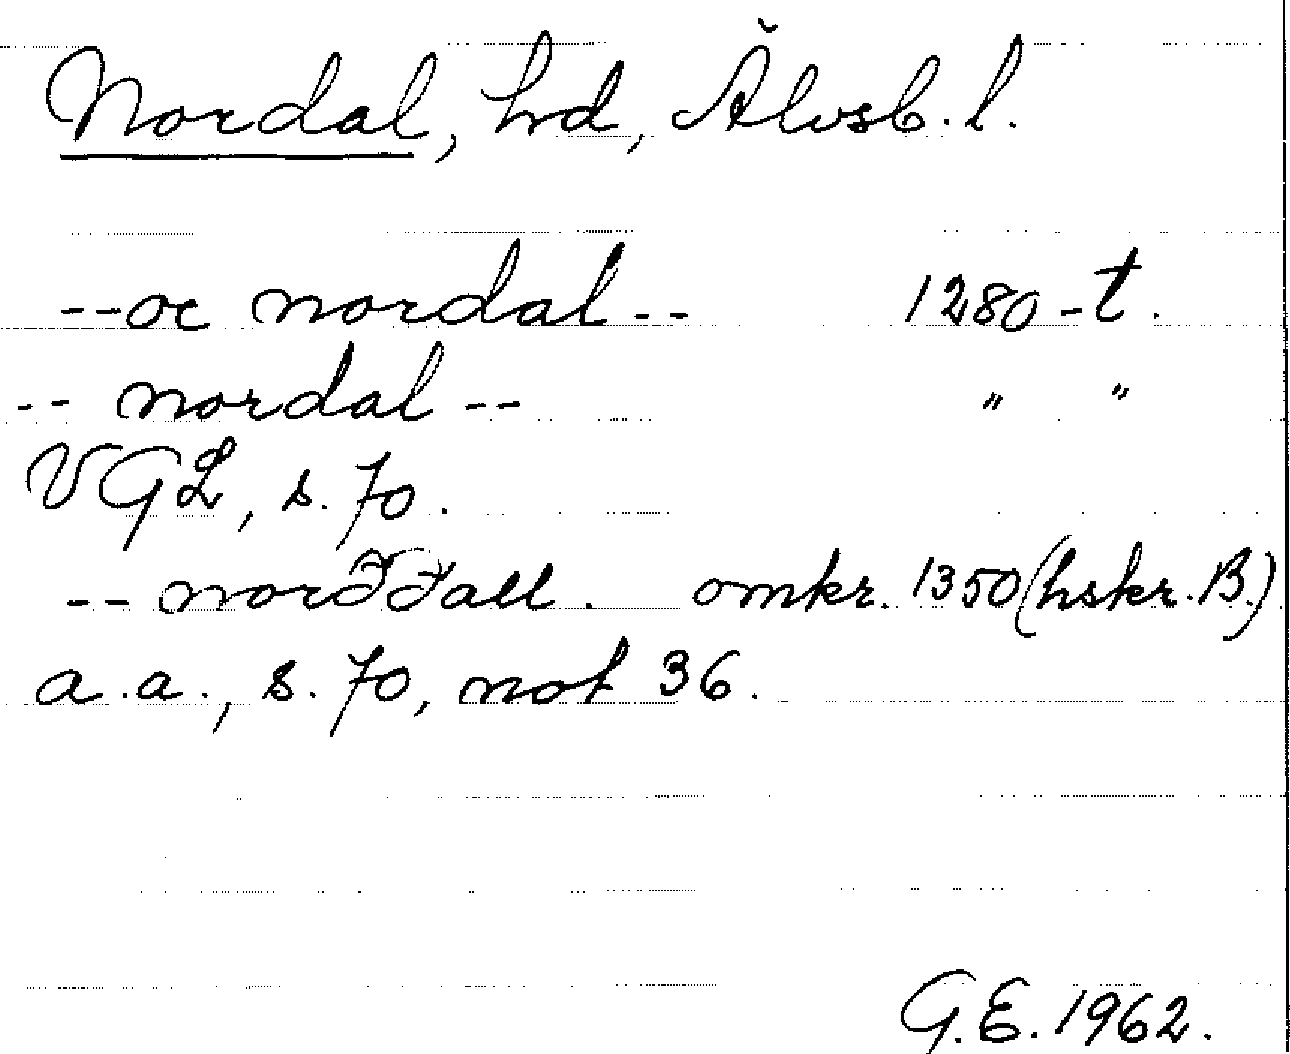 Nordal, hd, Älvsb. l.
--oc nordal-- 1280-t.
-- nordal -- " "
VGL, s. 70.
-- norđđall. omkr. 1350 (hskr. B.)
a.a., s. 70, not 36.
G.E. 1962.